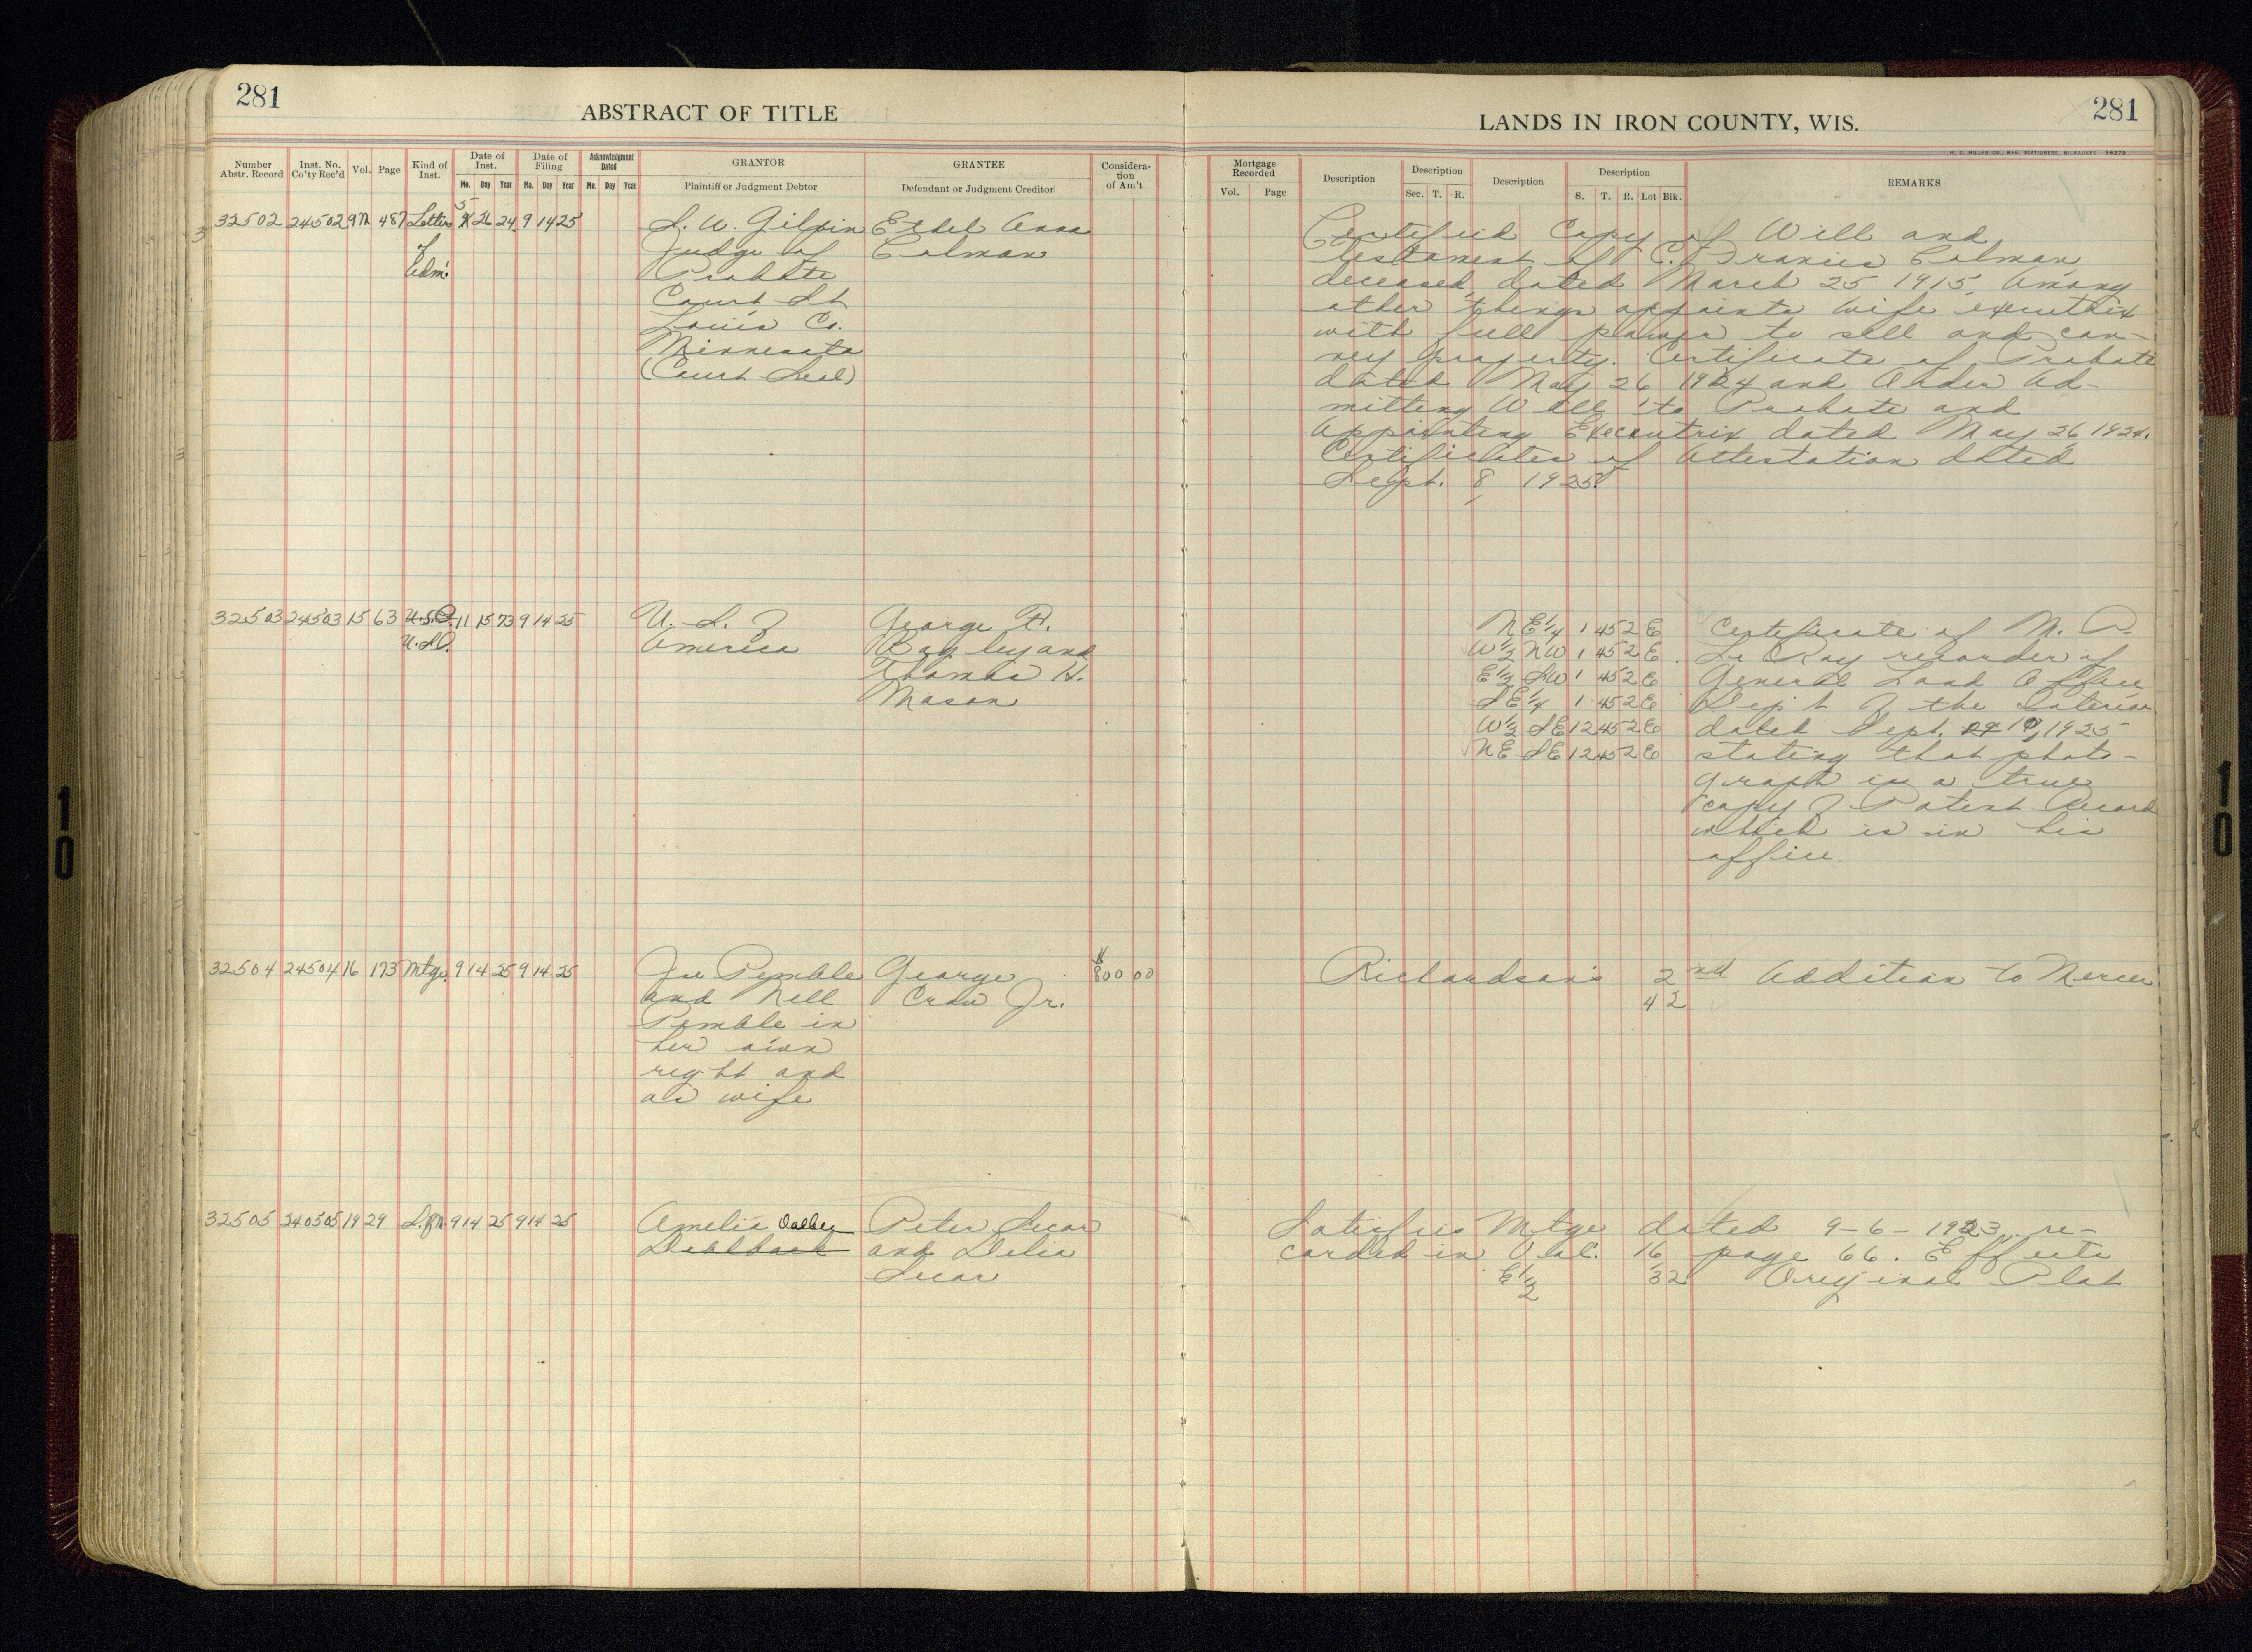 281
ABSTRACT OF TITLE
LANDS IN IRON COUNTY, WIS.
281
H. C. MILLER CO., MFG. STATIONERS, MILWAUKEE
Number Abstr. Record
Inst. No. Co'ty Rec'd
Vol.
Page
Kind of Inst.
Date of Inst.
Mo. Day Year
Date of Filing
Mo. Day Year
Acknowledgment Dated
Mo. Day Year
GRANTOR
Plaintiff or Judgment Debtor
GRANTEE
Defendant or Judgment Creditor
Considera-
tion
of Am't
Mortgage Recorded
Vol. Page
Description
Description
Sec. T. R.
Description
Description
S. T. R. Lot Blk.
REMARKS
32502 24502 9M 487 Letters 5 26 24 9 14 25
of
Adm.
S. W. Gilpin
Judge of
Probate
Court St
Louis Co.
Minnesota
(Court Seal)
Ethel Anna
Colman
Certified Copy of Will and
Testament of C. Francis Colman,
deceased, dated March 25 1915. Among
other things appoints wife executrix
with full power to sell and con-
vey property. Certificate of Probate
dated May 26 1924 and Order Ad-
mitting Will to Probate and
Appointing Executrix dated May 26, 1924.
Certificates of Attestation dated
Sept. 8, 1925.
32503 24503 15 63 U.S.O. 11 15 73 9 14 25
U.S.
U. S. of
America
George R.
Bagley and
Thomas H.
Mason
NE 1/4 1 45 2 E
W 1/2 NW 1 45 2 E
E 1/2 SW 1 45 2 E
SE 1/4 1 45 2 E
W 1/2 SE 12 45 2 E
NE SE 12 45 2 E
Certificate of M. P.
Le Roy recorder of
General Land Office
Dep't of the Interior
dated Sept. 10, 1925
stating that photo-
graph is a true
copy of Patent Record
which is in his
office.
32504 24504 16 173 Mtge. 9 14 25 9 14 25
Joe Pemble
and Nell
Pemble in
her own
right and
as wife
George
Crow Jr.
$ 800 00
Richardson's 2nd Addition to Mercer
4 2
32505 240505 19 29 S.M. 9 14 25 9 14 25
Amelia Dalbey
Dahlback
Peter Secar
and Delia
Secar
Satisfies Mtge dated 9-6-1923 re-
corded in Vol. 16 page 66. Effects
E 1/2 3 2 Original Plat